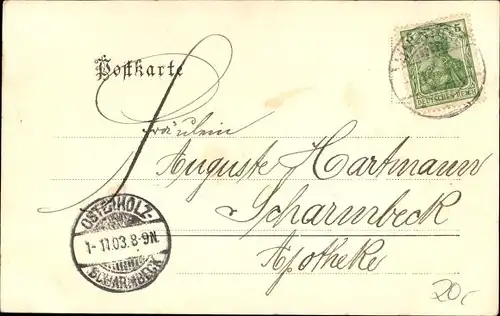 Postkarte
5 5
DEUTSCHES REICH
Fräulein
Auguste Hartmann
Scharmbeck
Apotheke
OSTERHOLZ-
1-11.03.8-9N.
SCHARMBECK
20,-